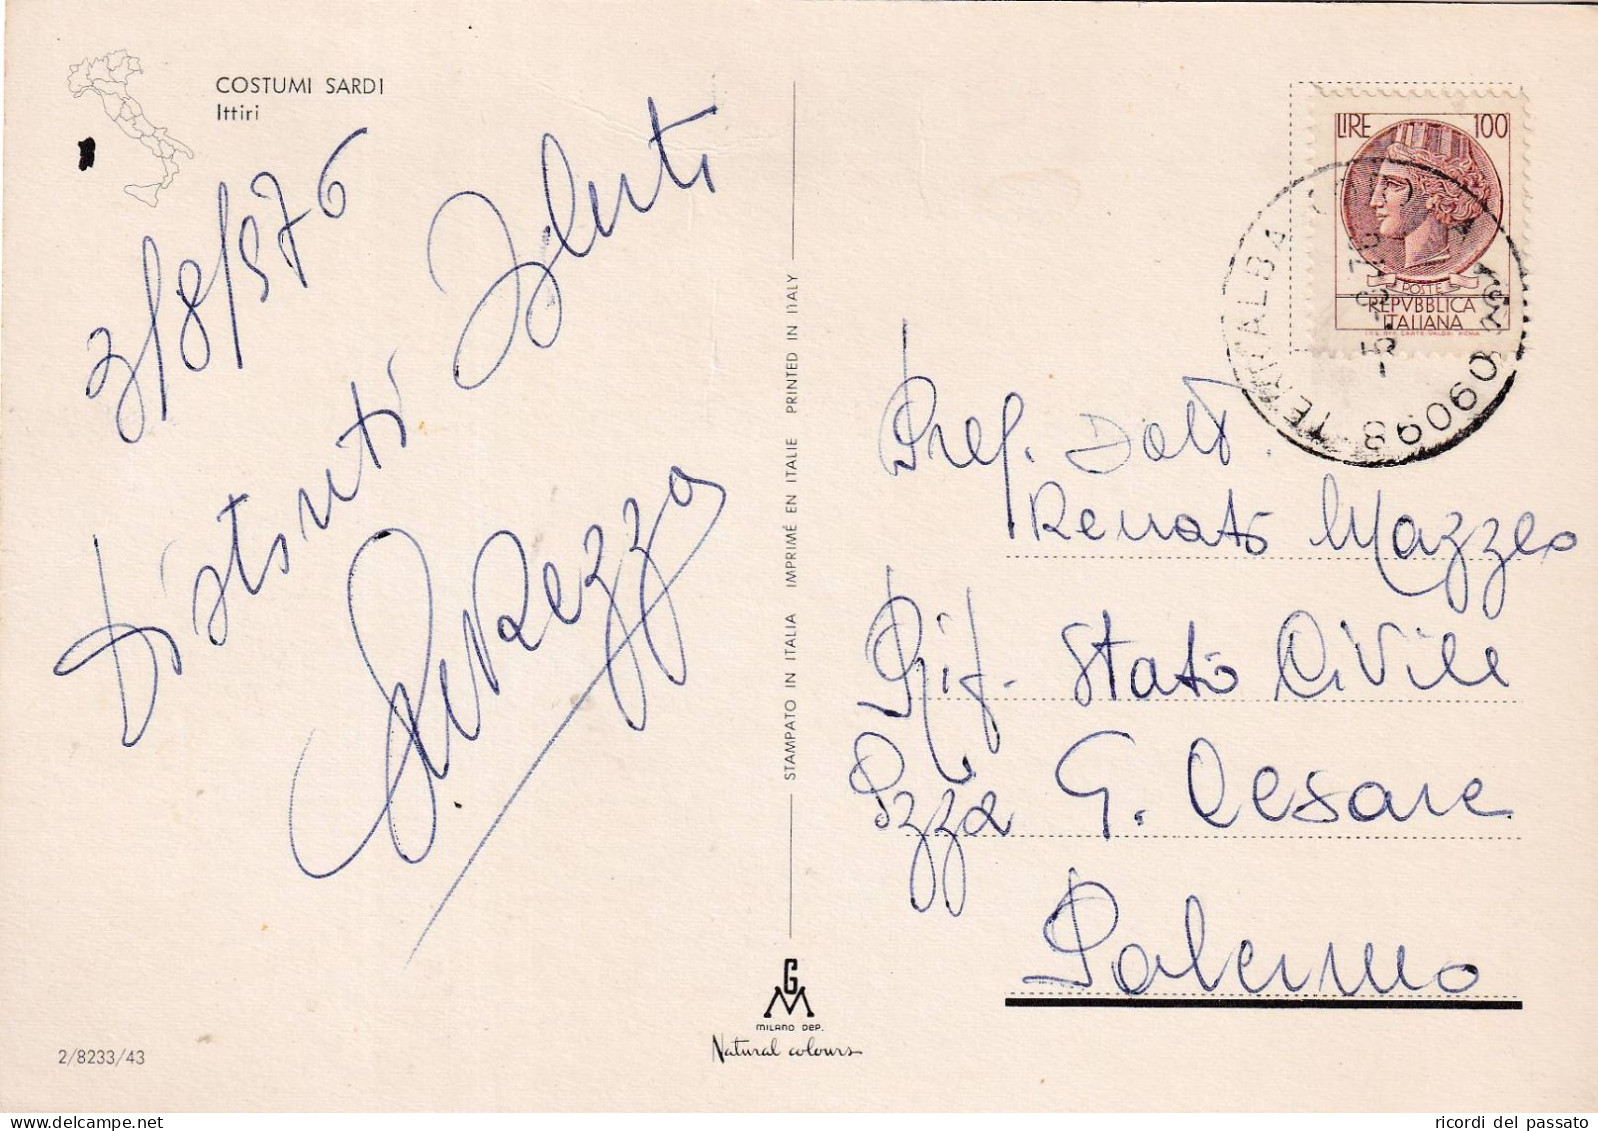 COSTUMI SARDI
Ittiri
3/8/976
Distinti Saluti
LIRE 100
POSTE
REPVBBLICA
ITALIANA
TERRALBA
09098
5-8-76
Dott.
Renato Mazzeo
Rif. Stato Civile
Pzza G. Cesare
Palermo
STAMPATO IN ITALIA IMPRIMÉ EN ITALIE PRINTED IN ITALY
GM
MILANO DEP.
Natural colours
2/8233/43
ricordi del passato